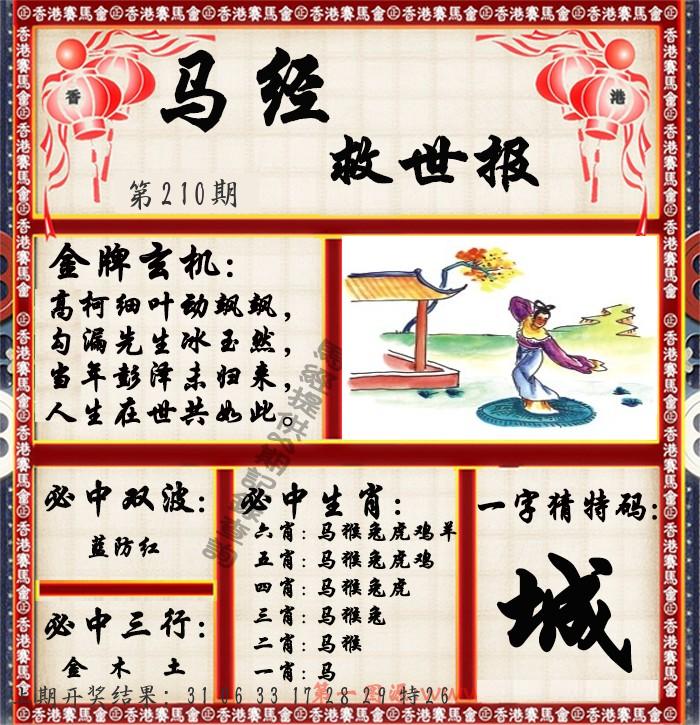 香港賽馬會
香
港
马经
救世报
第210期
金牌玄机:
高柯细叶动飒飒,
勾漏先生冰玉然,
当年彭泽未归来,
人生在世共如此。
必中双波:
蓝防红
必中三行:
金 木 土
必中生肖:
六肖:马猴兔虎鸡羊
五肖:马猴兔虎鸡
四肖:马猴兔虎
三肖:马猴兔
二肖:马猴
一肖:马
一字猜特码:
城
期开奖结果: 31 06 33 17 28 29 特26
第一图源